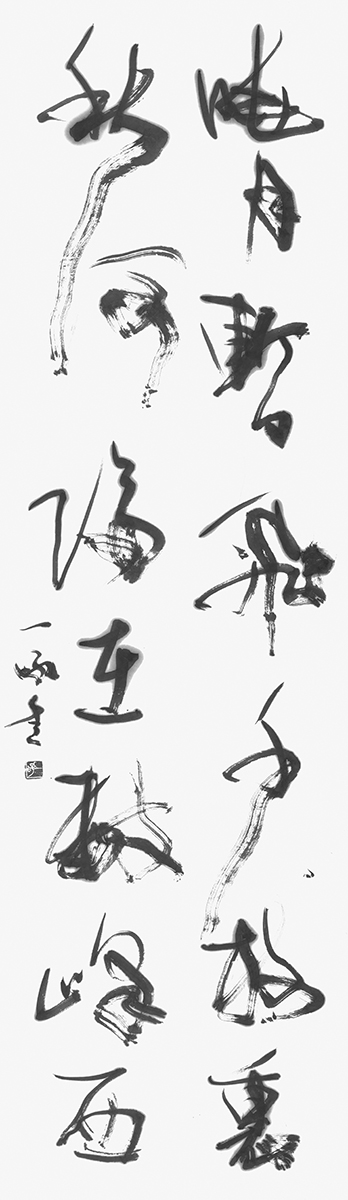 曉月暫飛千樹裏
秋河隔在數峰西
一書